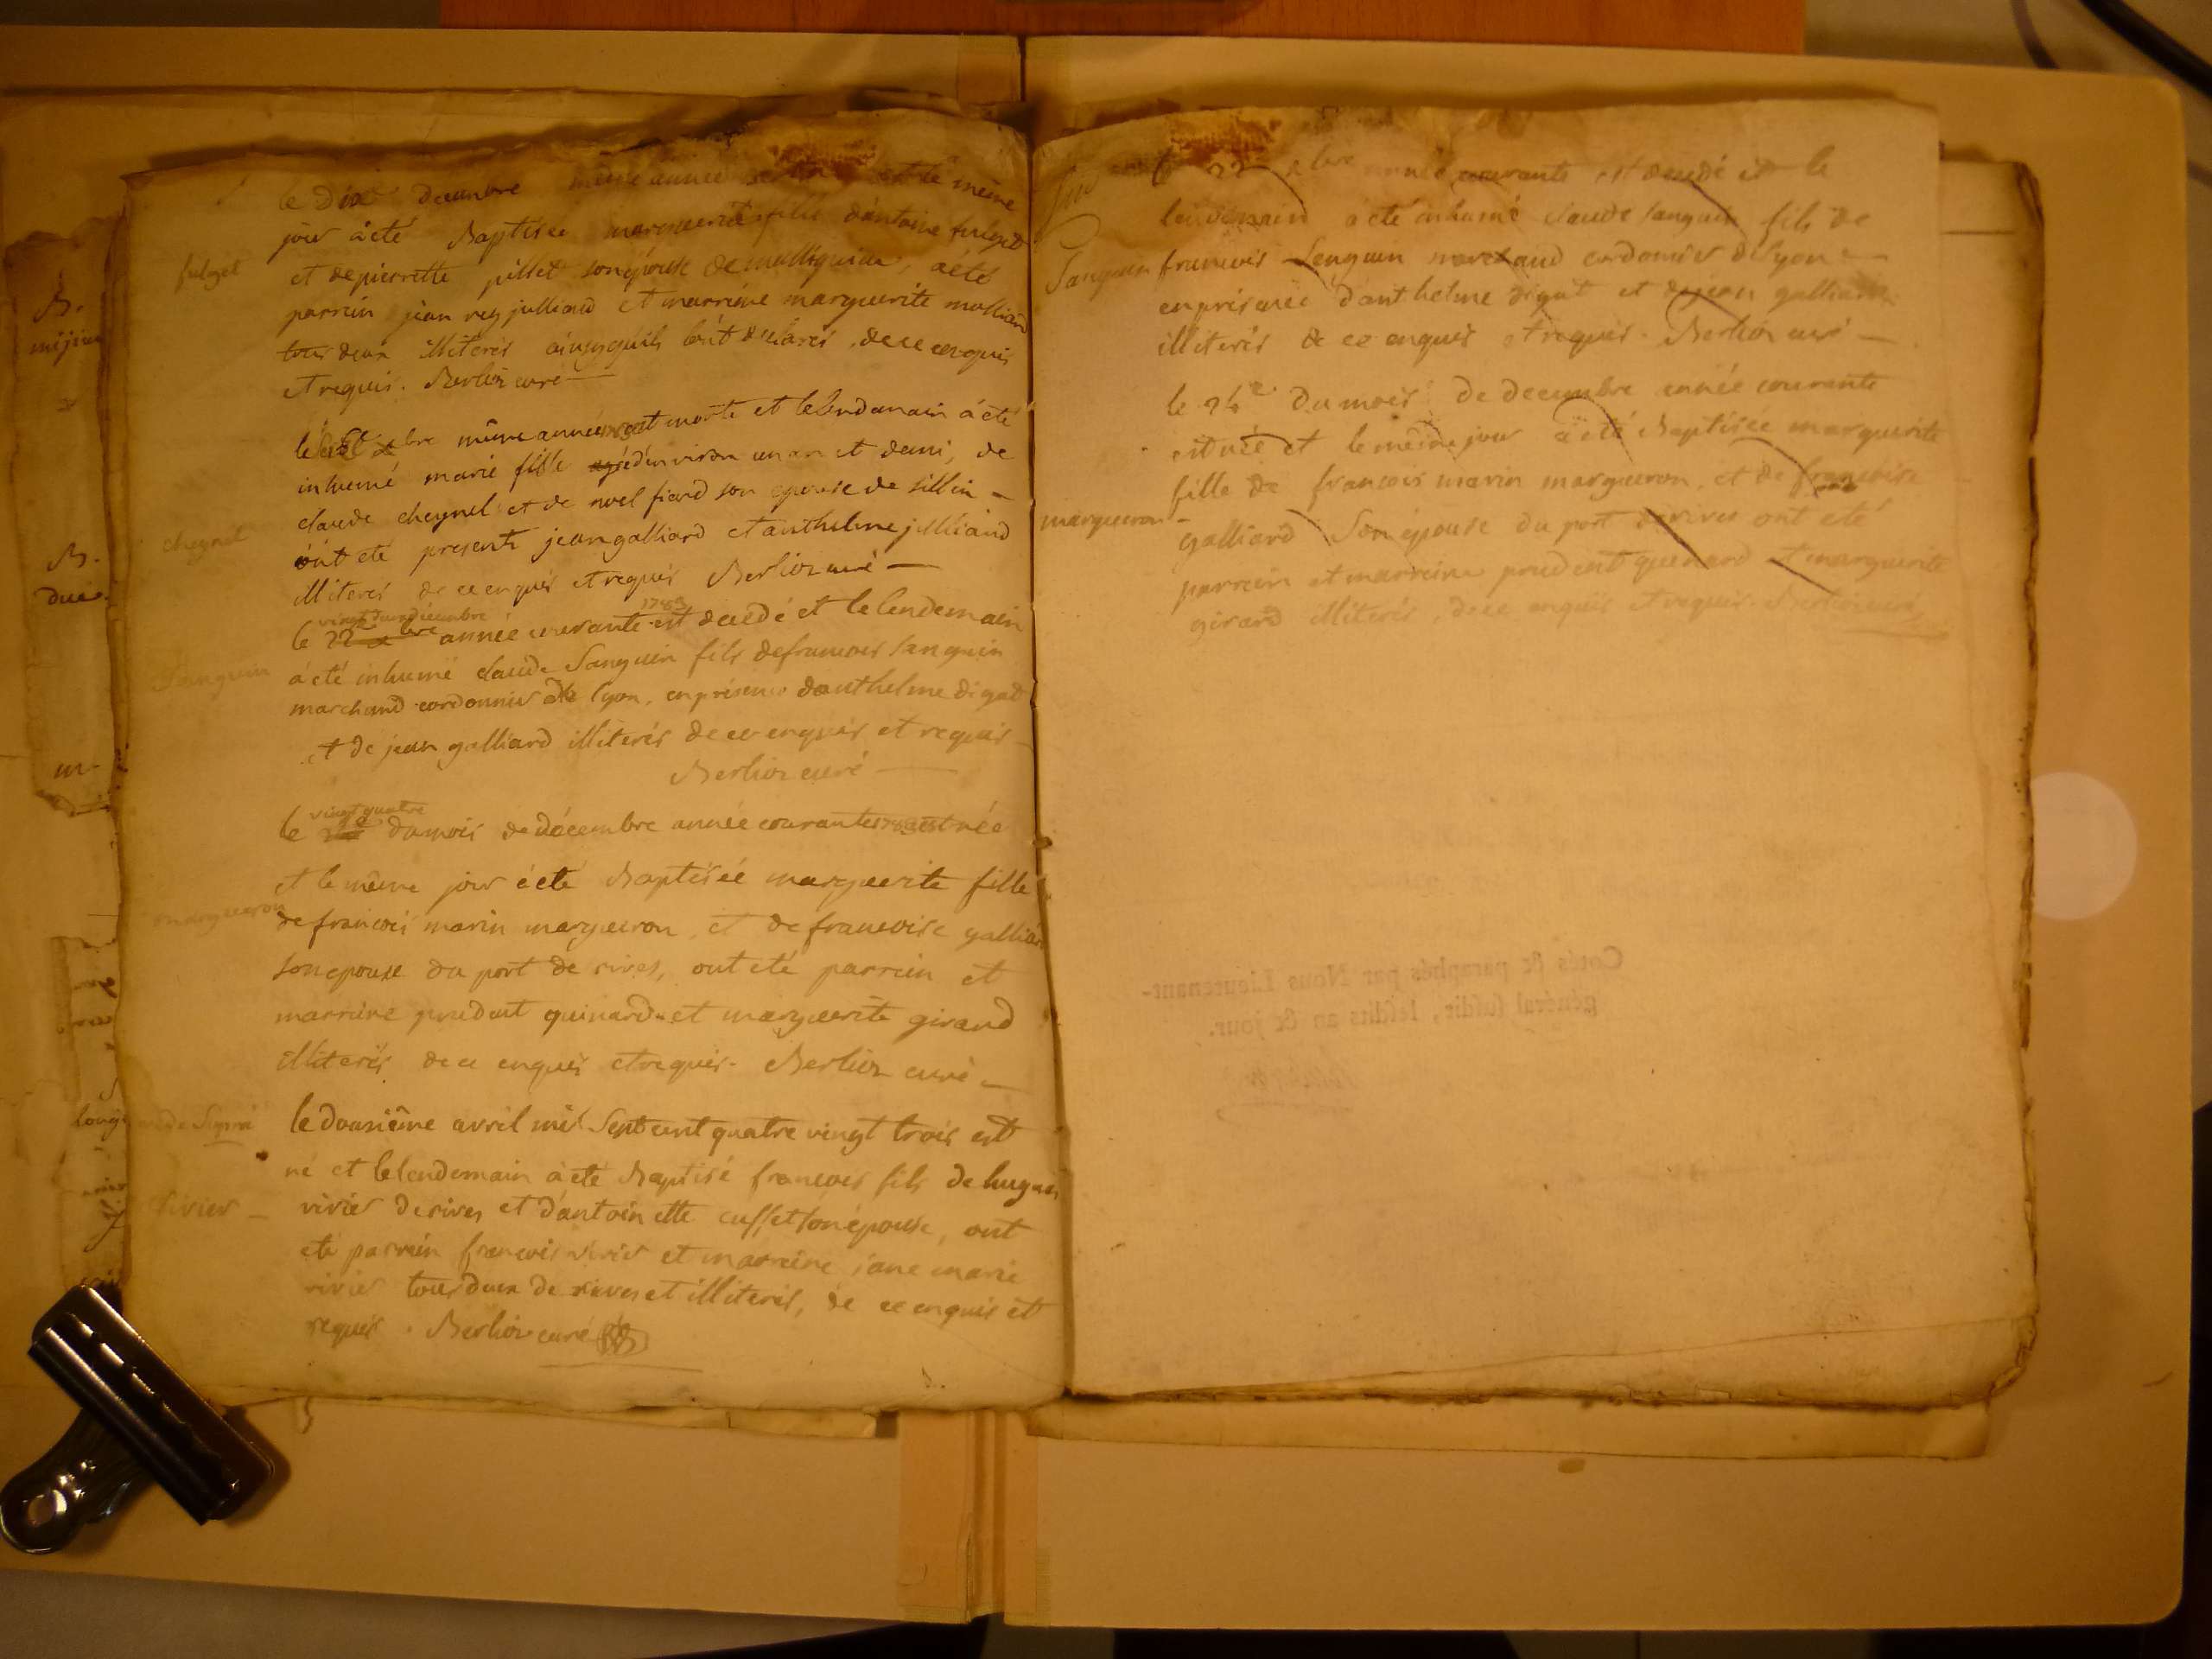 le Dix decembre même année est le même
jour a été Baptisée marguerite fille d'antoine fulget
fulget
et de pierrette pillet son épouse de massignieu, a été
parrein jean rey julliand et marreine marguerite molliard
tous deux illiterés ainsy quils l'ont declarés, de ce enquis
et requis. Berlioz curé
le bre même année est morte et le lendemain a été
inhumé marie fille agé d'environ un an et demi, de
claude cheynel et de noel fiard son epouse de sillin -
cheynel
ont eté presents jean galliard et anthelme julliand
illiterés de ce enquis et requis Berlioz curé
vingt deux décembre 1783
le 22 xbre année courante est decedé et le lendemain
a été inhumé claude Sanguin fils de francois Sanguin
Sanguin
marchand cordonnier de lyon, en présence danthelme digat
et de jean galliard illiterés de ce enquis et requis -
Berlioz curé
vingt quatre
le 24e du mois de décembre année courante 1783 est née
et le même jour a été Baptisée marguerite fille
margueron
de francois marin margueron, et de francoise galliard
son epouse du port de rives, ont eté parrein et
marreine prudent guinard et marguerite girard
illiterés de ce enquis et requis. Berlioz curé
le dousième avril mil Sept cent quatre vingt trois est
né et le lendemain a été Baptisé francois fils de hugues
vivier
vivier de rives et d'antoinette cusset son épouse, ont
eté parrein francois vivier et marreine jane marie
vivier tous deux de rives et illiterés, de ce enquis et
requis. Berlioz curé
le 22 xbre année courante est decedé et le
lendemain a été inhumé claude Sanguin fils de
Sanguin
francois Sanguin marchand cordonnier de Lyon
en présence d'anthelme digat et de jean galliard
illiterés de ce enquis et requis. Berlioz curé
le 24e du mois de decembre année courante
est née et le même jour a été Baptisée marguerite
fille de francois marin margueron, et de francoise
margueron
galliard Son épouse du port de rives ont eté
parrein et marreine prudent guenard et marguerite
girard illiterés, de ce enquis et requis. Berlioz curé
Cotés & paraphés par Nous Lieutenant-
général susdit, lesdits an & jour.